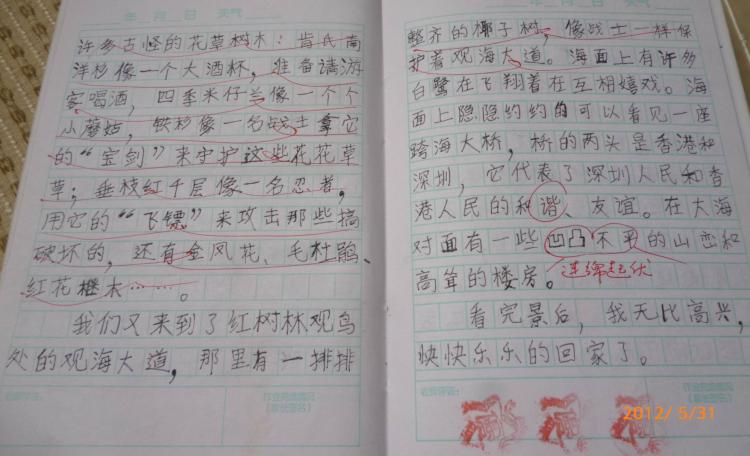 年 月 日 天气
许多古怪的花草树木：肯氏南
洋杉像一个大酒杯，准备请游
客喝酒，四季米仔兰像一个个
小蘑菇，铁杉像一名战士拿它
的“宝剑”来守护这些花花草
草；垂枝红千层像一名忍者，
用它的“飞镖”来攻击那些搞
破坏的，还有金凤花、毛杜鹃、
红花继木……。
我们又来到了红树林观鸟
处的观海大道，那里有一排排
作业完成情况
（家长签名）
年 月 日 天气
整齐的椰子树，像战士一样保
护着观海大道。海面上有许多
白鹭在飞翔着在互相嬉戏。海
面上隐隐约约的可以看见一座
跨海大桥，桥的两头是香港和
深圳，它代表了深圳人民和香
港人民的和谐、友谊。在大海
对面有一些凹凸不平的山峦和
高耸的楼房。连绵起伏
看完景后，我无比高兴，
快快乐乐的回家了。
作业完成情况
（家长签名）
2012/5/31